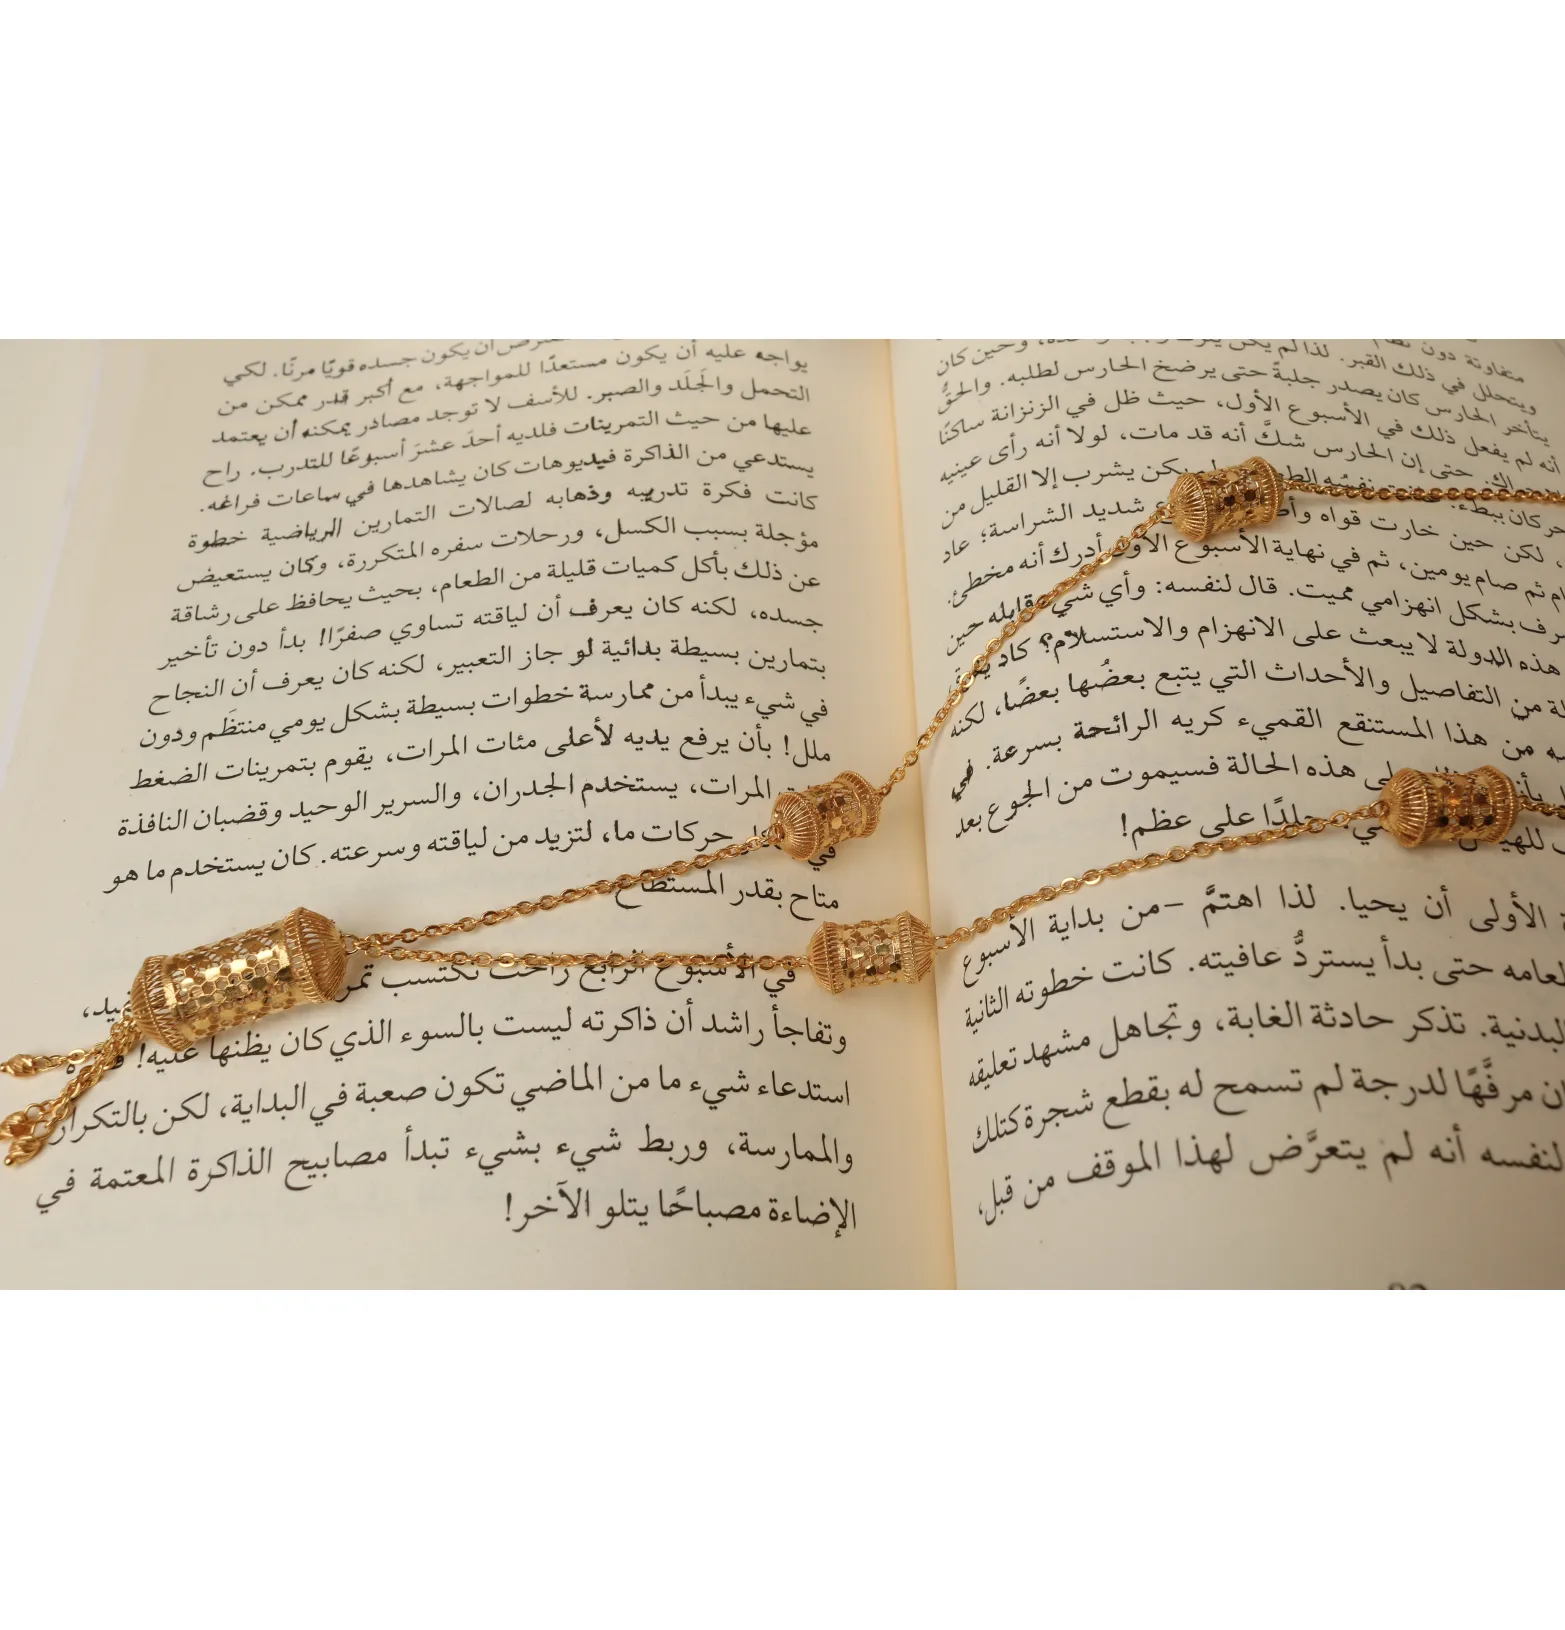 متفاوتة دون نظام
ويتحلل في ذلك القبر. لذا لم يكن وحين كان
يتأخر الحارس كان يصدر جلبةً حتى يرضخ الحارس لطلبه. والحقُّ
أنه لم يفعل ذلك في الأسبوع الأول، حيث ظل في الزنزانة ساكنًا
حتى إن الحارس شكَّ أنه قد مات، لولا أنه رأى عينيه
تحركان ببطء. نفسُه يكن يشرب إلا القليل من
، لكن حين خارت قواه شديد الشراسة؛ عاد
ثم صام يومين، ثم في نهاية الأسبوع الأول أدرك أنه مخطئ.
بشكل انهزامي مميت. قال لنفسه: وأي شيء حين
هذه الدولة لا يبعث على الانهزام والاستسلام؟ كاد
من التفاصيل والأحداث التي يتبع بعضُها بعضًا، لكنه
من هذا المستنقع القميء كريه الرائحة بسرعة. في
هذه الحالة فسيموت من الجوع بعد
جلدًا على عظم!
الأولى أن يحيا. لذا اهتمَّ –من بداية الأسبوع
حتى بدأ يستردُّ عافيته. كانت خطوته الثانية
البدنية. تذكر حادثة الغابة، وتجاهل مشهد تعليقه
مرفَّهًا لدرجة لم تسمح له بقطع شجرة كتلك
لنفسه أنه لم يتعرَّض لهذا الموقف من قبل،
أن يكون جسده قويًا مرنًا. لكي
يواجه عليه أن يكون مستعدًا للمواجهة، مع أكبر قدر ممكن من
التحمل والجَلَد والصبر. للأسف لا توجد مصادر يمكنه أن يعتمد
عليها من حيث التمرينات فلديه أحدَ عشرَ أسبوعًا للتدرب. راح
يستدعي من الذاكرة فيديوهات كان يشاهدها في ساعات فراغه.
كانت فكرة تدريبه وذهابه لصالات التمارين الرياضية خطوة
مؤجلة بسبب الكسل، ورحلات سفره المتكررة، وكان يستعيض
عن ذلك بأكل كميات قليلة من الطعام، بحيث يحافظ على رشاقة
جسده، لكنه كان يعرف أن لياقته تساوي صفرًا! بدأ دون تأخير
بتمارين بسيطة بدائية لو جاز التعبير، لكنه كان يعرف أن النجاح
في شيء يبدأ من ممارسة خطوات بسيطة بشكل يومي منتظَم ودون
ملل! بأن يرفع يديه لأعلى مئات المرات، يقوم بتمرينات الضغط
المرات، يستخدم الجدران، والسرير الوحيد وقضبان النافذة
في حركات ما، لتزيد من لياقته وسرعته. كان يستخدم ما هو
متاح بقدر المستطاع
في الأسبوع الرابع راحت تكتسب
وتفاجأ راشد أن ذاكرته ليست بالسوء الذي كان يظنها عليه!
استدعاء شيء ما من الماضي تكون صعبة في البداية، لكن بالتكرار
والممارسة، وربط شيء بشيء تبدأ مصابيح الذاكرة المعتمة في
الإضاءة مصباحًا يتلو الآخر!